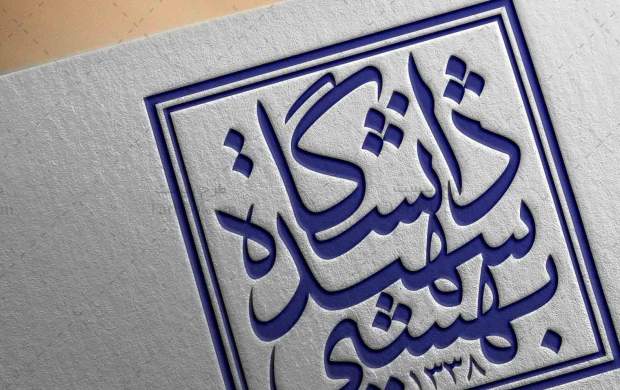 دانشگاه
شهید
بهشتی
۱۳۳۸